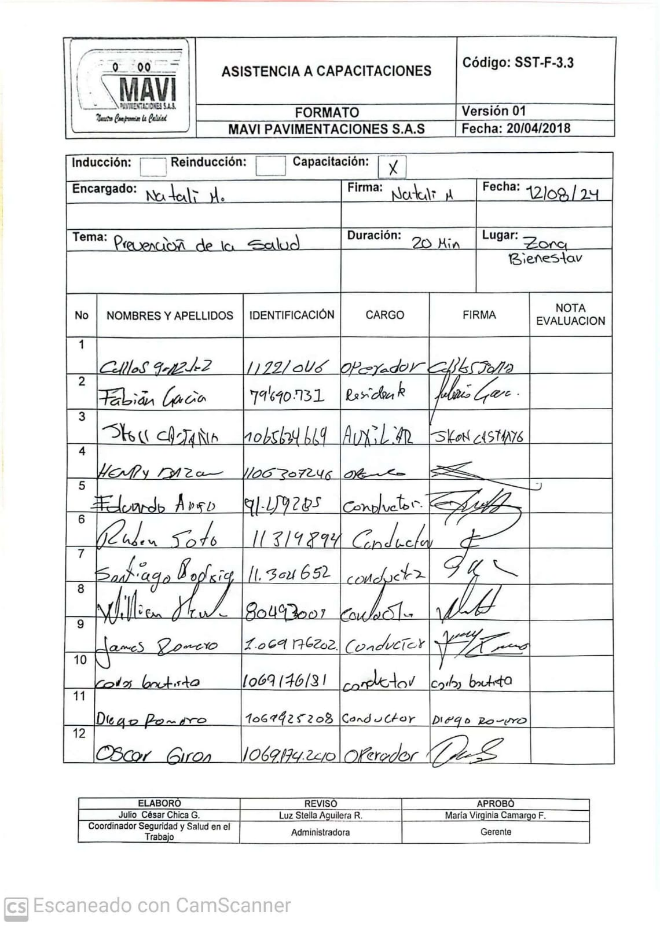 MAVI
PAVIMENTACIONES S.A.S.
Nuestro Compromiso la Calidad
ASISTENCIA A CAPACITACIONES
Código: SST-F-3.3
FORMATO
Versión 01
MAVI PAVIMENTACIONES S.A.S
Fecha: 20/04/2018
Inducción: Reinducción: Capacitación: X
Encargado: Natali H. Firma: Natali H Fecha: 12/08/24
Tema: Prevención de la Salud Duración: 20 Min Lugar: Zona
Bienestar
No NOMBRES Y APELLIDOS IDENTIFICACIÓN CARGO FIRMA NOTA EVALUACION
1 operador
2 Fabián Garcia 79'690.731 Residente
3 1065634669 AUXILIAR
4 HENRY 1106307246
5 Eduardo 91.459285 conductor.
6 Ruben Soto 11319894 Conductor
7 Santiago Rodrig 11.304652
8 William 80493007
9 James Romero 1.069176202. Conductor
10 carlos bautista 1069176181 conductor carlos bautista
11 Diego Romero 1069925208 Conductor Diego Romero
12 OSCAR GIRON 1069174.240 operador
ELABORÓ REVISÓ APROBÓ
Julio César Chica G. Luz Stella Aguilera R. María Virginia Camargo F.
Coordinador Seguridad y Salud en el
Trabajo Administradora Gerente
CS Escaneado con CamScanner